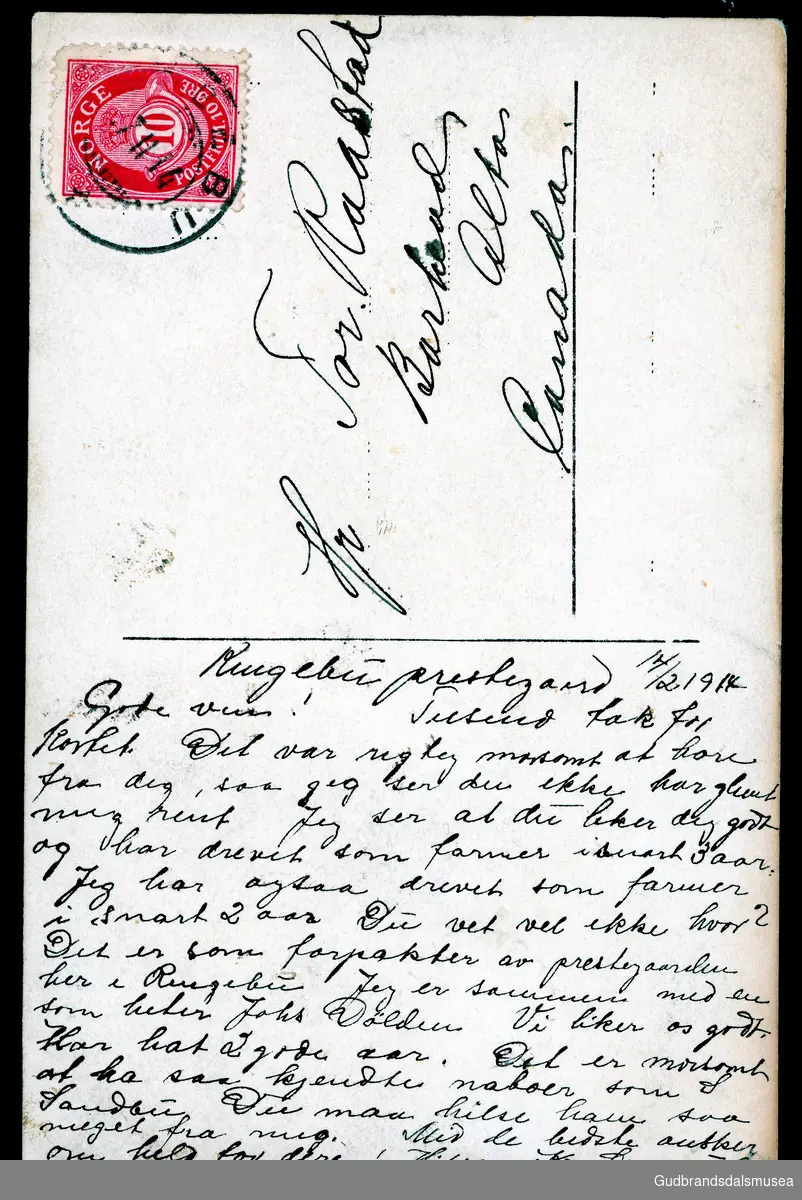 NORGE
POSTFRIM. 10 ØRE
10
BU
Hr Tor. Raastad
Barhead
Alta
Canada.
Ringebu prestegaard 14/2 1914
Gode ven! Tusend tak for
kortet. Det var rigtig morsomt at høre
fra dig, saa jeg ser du ikke har glemt
mig rent Jeg ser at du liker dig godt
og har drevet som farmer i snart 3 aar.
Jeg har ogsaa drevet som farmer
i snart 2 aar Du vet vel ikke hvor?
Det er som forpakter av prestegaarden
her i Ringebu Jeg er sammen med en
som heter Johs Dølden Vi liker os godt.
Har hat 2 gode aar. Det er morsomt
at ha saa kjendte naboer som S
Sandbu Du maa hilse ham saa
meget fra mig. Med de bedste ønsker
om held for dere!
Gudbrandsdalsmusea